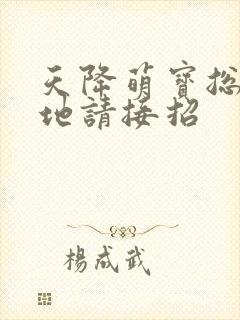 天降萌寶總
地請接招
楊成武